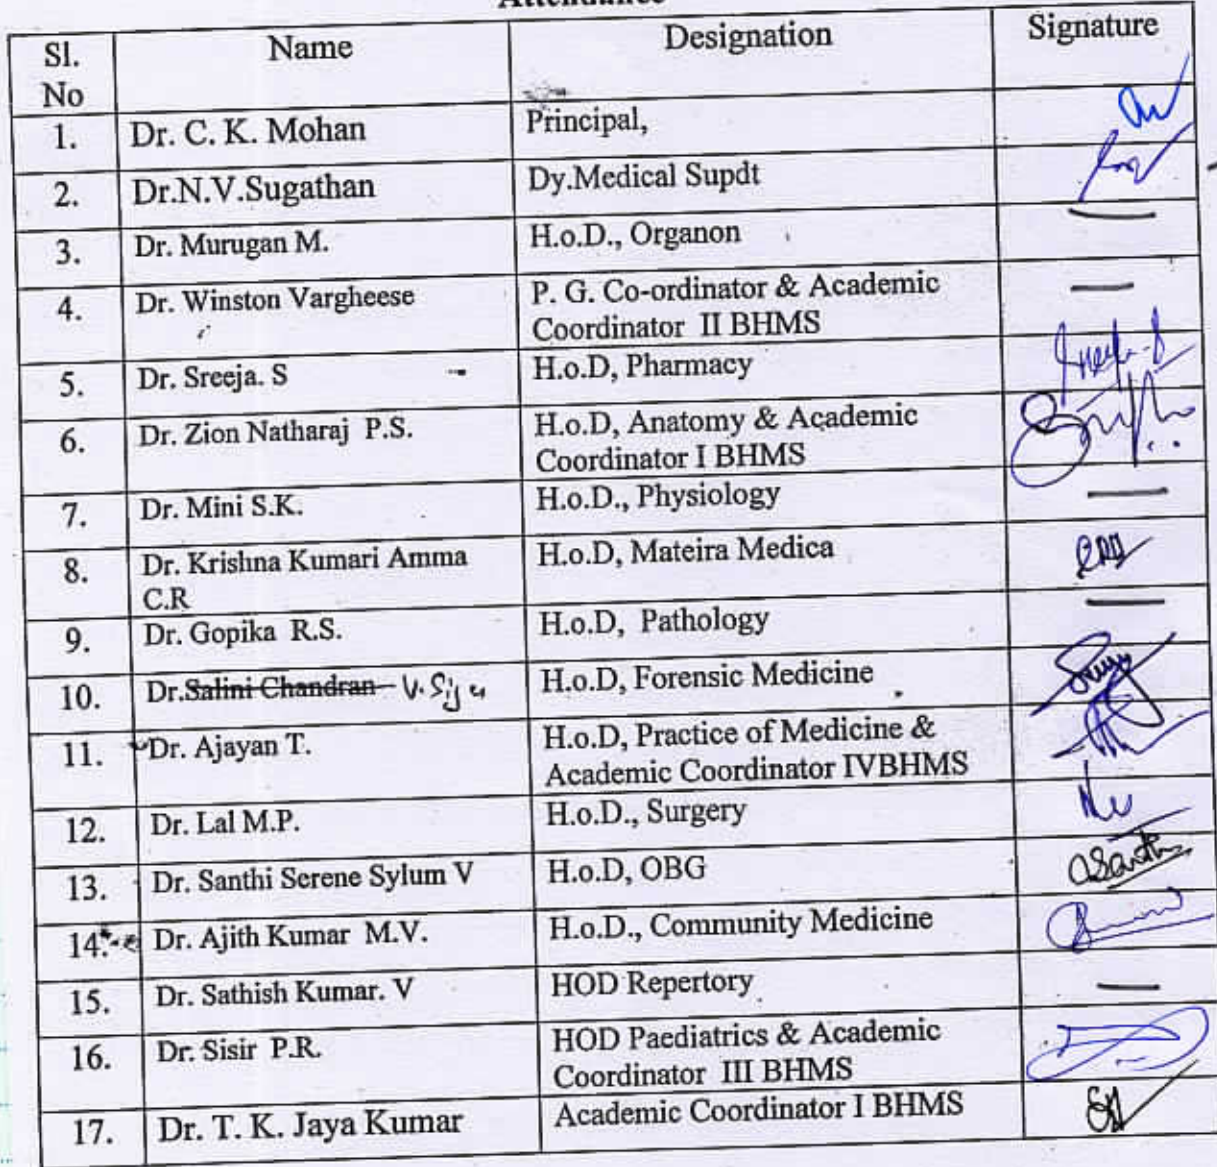 Attendance
Sl. No Name Designation Signature
1. Dr. C. K. Mohan Principal,
2. Dr.N.V.Sugathan Dy.Medical Supdt
3. Dr. Murugan M. H.o.D., Organon
4. Dr. Winston Vargheese P. G. Co-ordinator & Academic
Coordinator II BHMS
5. Dr. Sreeja. S H.o.D, Pharmacy
6. Dr. Zion Natharaj P.S. H.o.D, Anatomy & Academic
Coordinator I BHMS
7. Dr. Mini S.K. H.o.D., Physiology
8. Dr. Krishna Kumari Amma H.o.D, Mateira Medica
C.R
9. Dr. Gopika R.S. H.o.D, Pathology
10. Dr.Salini Chandran V. Siju H.o.D, Forensic Medicine
11. Dr. Ajayan T. H.o.D, Practice of Medicine &
Academic Coordinator IVBHMS
12. Dr. Lal M.P. H.o.D., Surgery
13. Dr. Santhi Serene Sylum V H.o.D, OBG
14. Dr. Ajith Kumar M.V. H.o.D., Community Medicine
15. Dr. Sathish Kumar. V HOD Repertory
16. Dr. Sisir P.R. HOD Paediatrics & Academic
Coordinator III BHMS
17. Dr. T. K. Jaya Kumar Academic Coordinator I BHMS